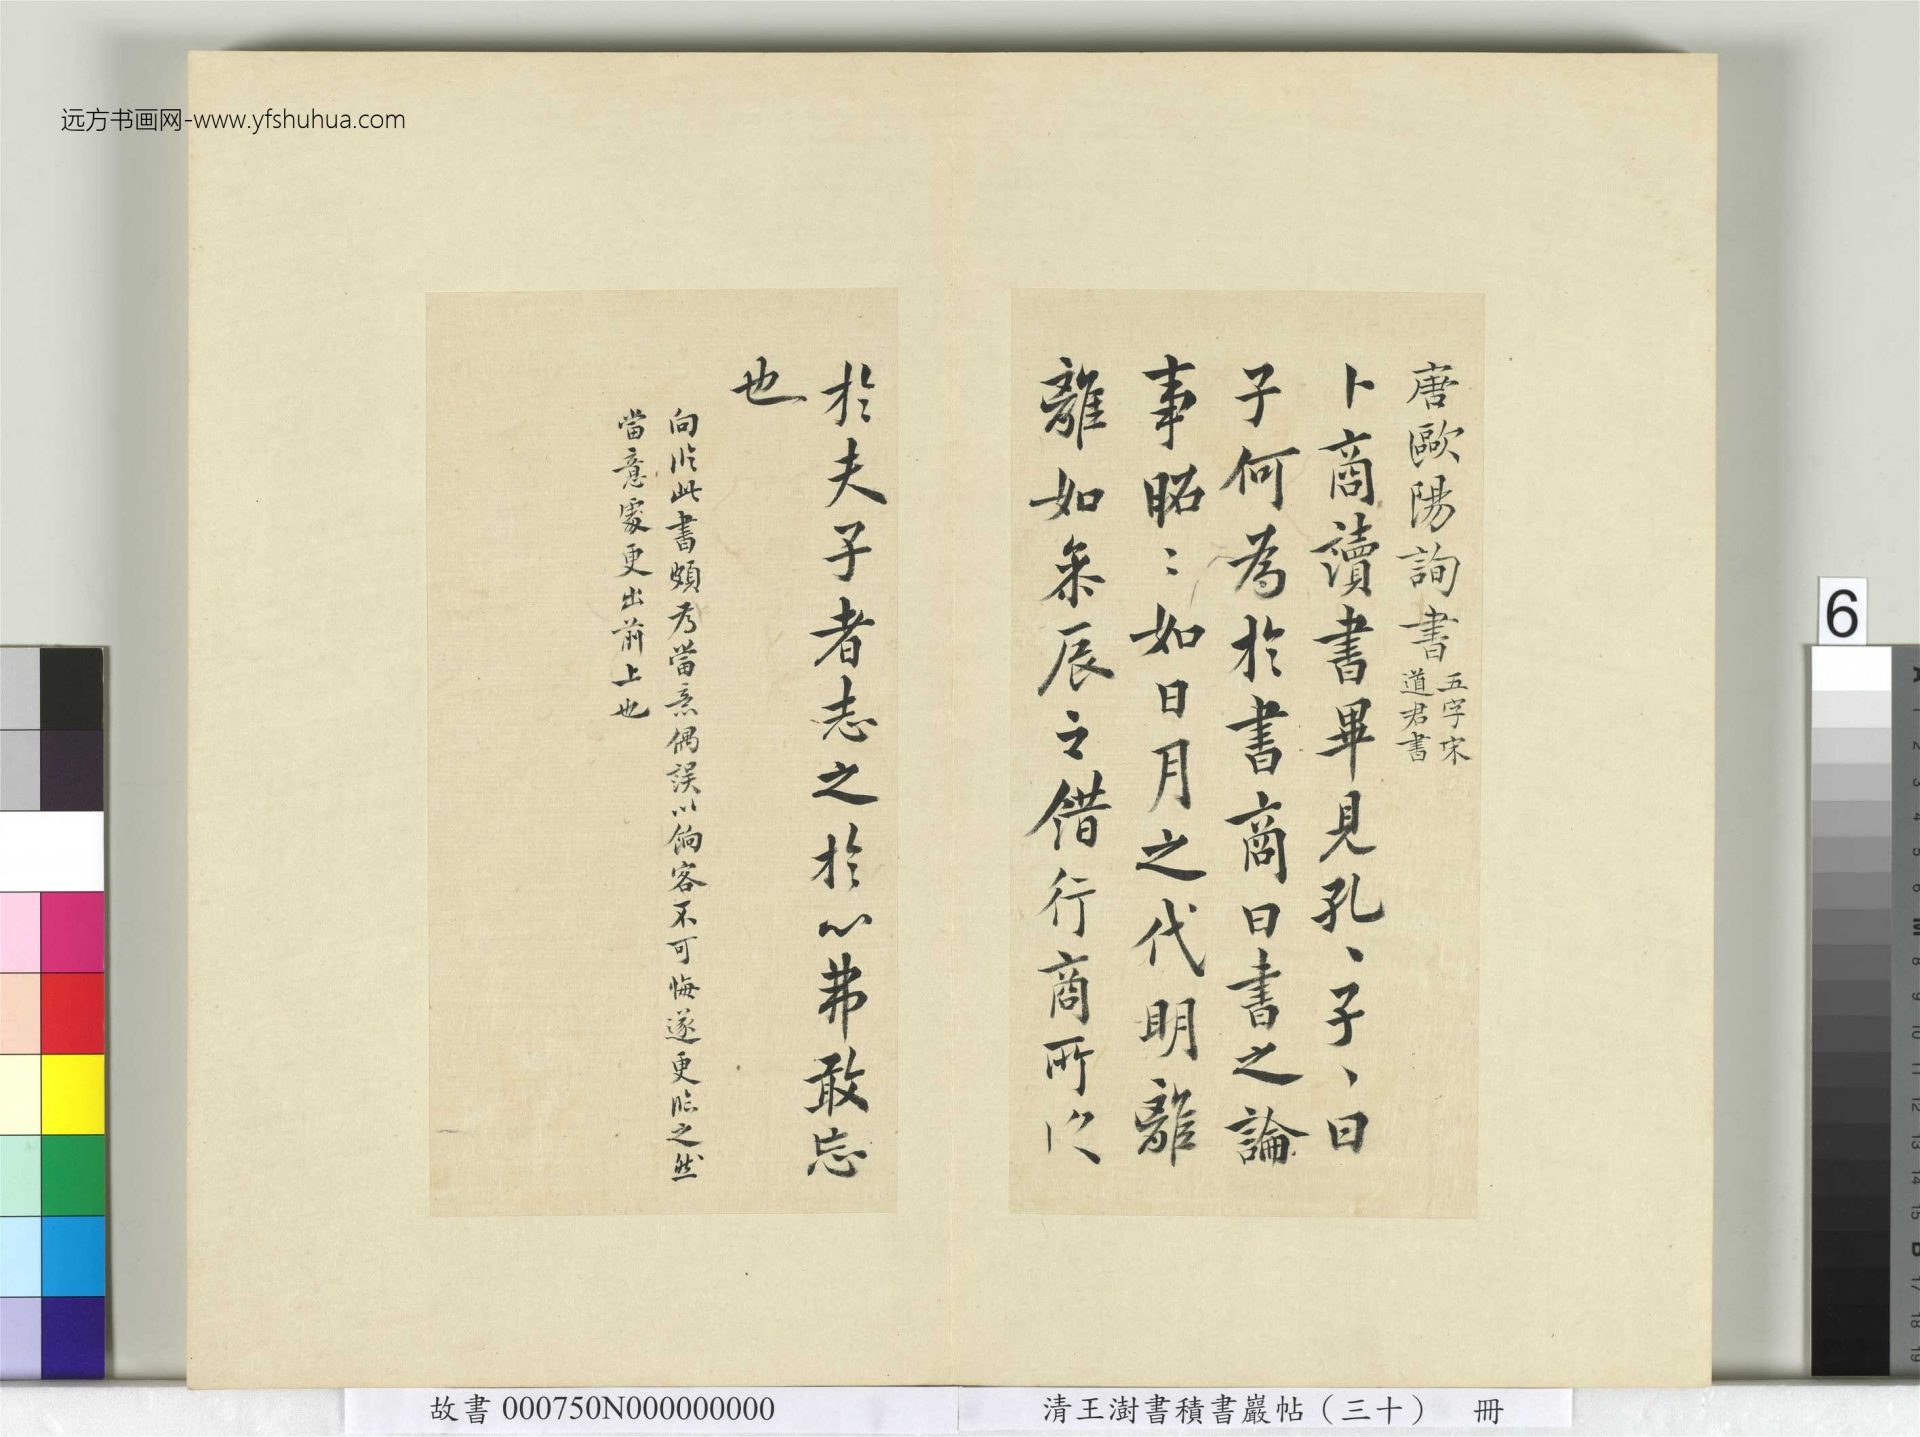 远方书画网-www.yfshuhua.com
唐歐陽詢書
五字宋
道君書
卜商讀書畢見孔、子、曰
子何為於書商曰書之論
事昭〻如日月之代明離
離如參辰之錯行商所以
於夫子者志之於心弗敢忘
也
向臨此書頗為當意偶誤以餉客不可悔遂更臨之然
當意處更出前上也
6
故書 000750N000000000
清王澍書積書巖帖（三十） 冊